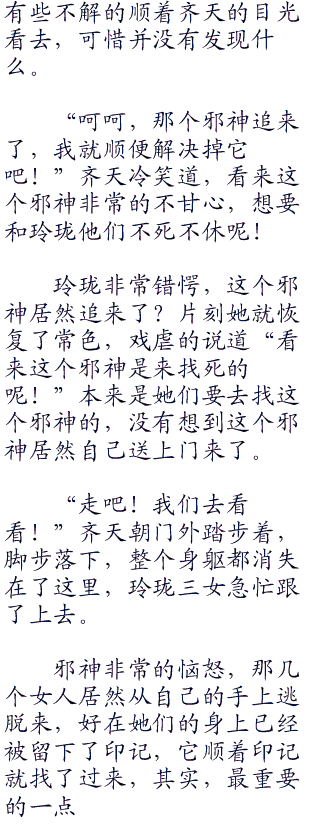 有些不解的顺着齐天的目光
看去，可惜并没有发现什
么。
“呵呵，那个邪神追来
了，我就顺便解决掉它
吧！”齐天冷笑道，看来这
个邪神非常的不甘心，想要
和玲珑他们不死不休呢！
玲珑非常错愕，这个邪
神居然追来了？片刻她就恢
复了常色，戏虐的说道“看
来这个邪神是来找死的
呢！”本来是她们要去找这
个邪神的，没有想到这个邪
神居然自己送上门来了。
“走吧！我们去看
看！”齐天朝门外踏步着，
脚步落下，整个身躯都消失
在了这里，玲珑三女急忙跟
了上去。
邪神非常的恼怒，那几
个女人居然从自己的手上逃
脱来，好在她们的身上已经
被留下了印记，它顺着印记
就找了过来，其实，最重要
的一点